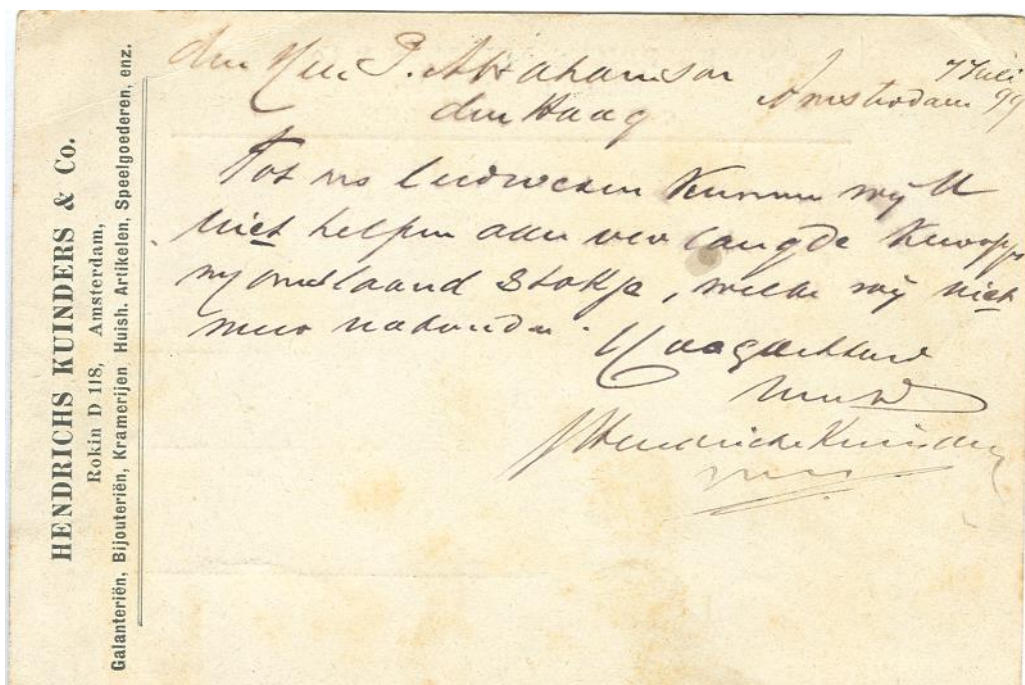 HENDRICHS KUINDERS & Co.
Rokin D 118, Amsterdam,
Galanteriën, Bijouteriën, Kramerijen Huish. Artikelen, Speelgoederen, enz.
den Heer P. Abrahamson
den Haag
7 Juli
Amsterdam 99
Tot ons leedwezen kunnen wij U
niet helpen aan verlangde
stokje, welke wij niet
meer
Hoogachtend
Hendrichs Kuinders